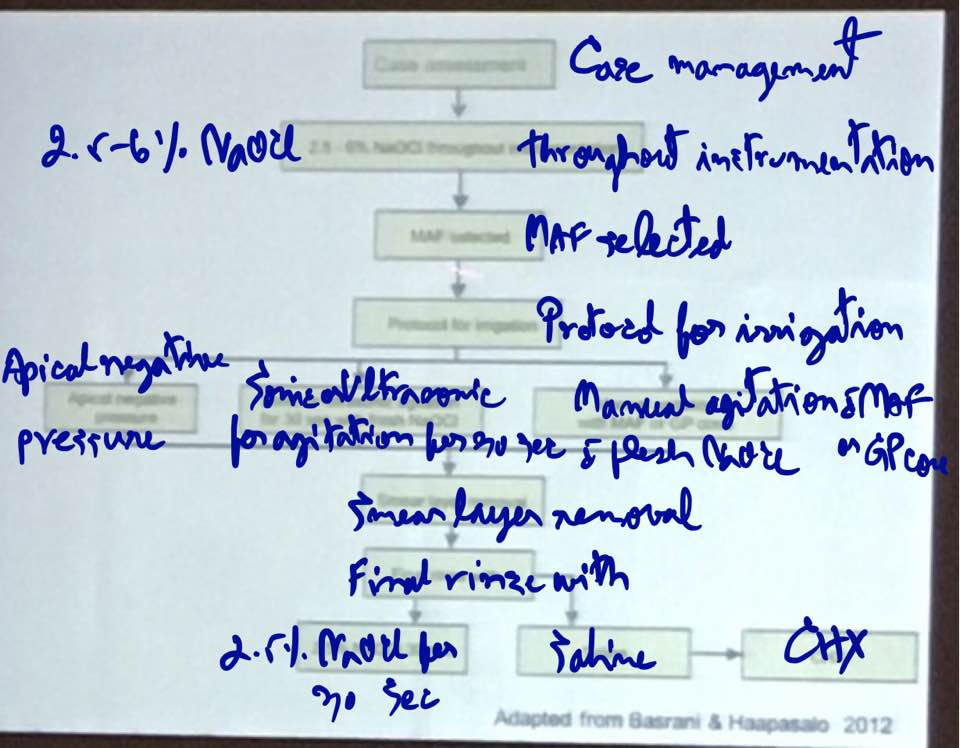 Case assessment
Case management
2.5-6% NaOCl
2.5 - 6% NaOCl throughout
throughout instrumentation
MAF selected
MAF selected
Protocol for irrigation
Protocol for irrigation
Apical negative
pressure
Apical negative
pressure
Sonic or Ultrasonic
for agitation for 30 sec & flesh NaOCl
Manual agitation & MAF
or GP cone
with MAF or GP
Smear layer removal
Final rinse with
2.5% NaOCl for
30 sec
Saline
CHX
Adapted from Basrani & Haapasalo 2012